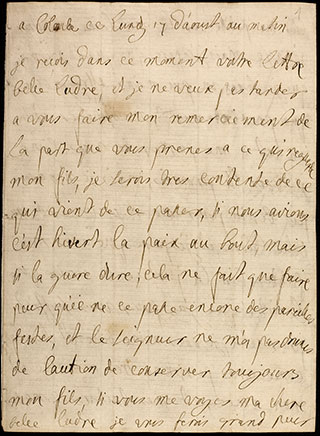 a Colombe ce Lundy 17 d'aoust au matin
je recois dans ce moment votre lettre
belle Ludre, et je ne veux pas tarder
a vous faire mon remerciement de
La part que vous prenes a ce qui regarde
mon fils, je serois tres contente de ce
qui vient de ce passer, si nous avions
c'est hivert la paix au bout mais
si la guere dure, cela ne fait que faire
peur qu'il ne ce passe encore des pareilles
festes, et le seigneur ne m'a pas donné
de caution de conserver toujours
mon fils, si vous me voyes ma chere
belle Ludre je vous ferois grand peur